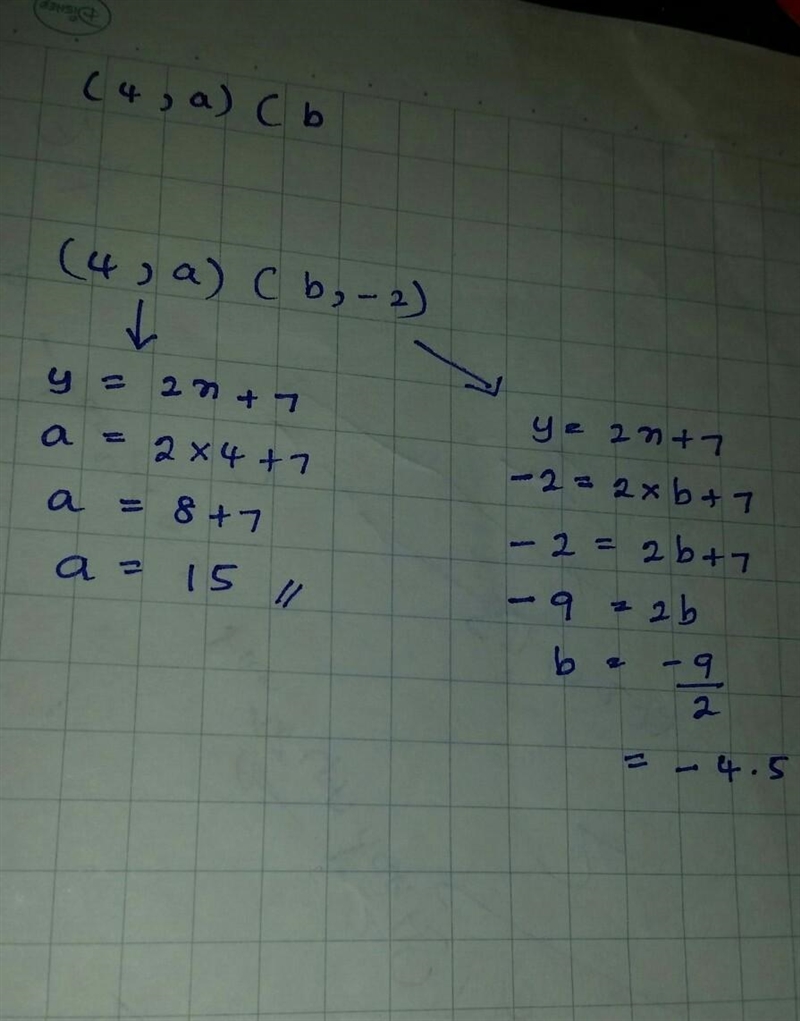 DISNEP
(4, a) (b
(4, a) (b, -2)
y = 2x + 7
a = 2 × 4 + 7
a = 8 + 7
a = 15 //
y = 2x + 7
-2 = 2 × b + 7
-2 = 2b + 7
-9 = 2b
b = -9/2
= -4.5